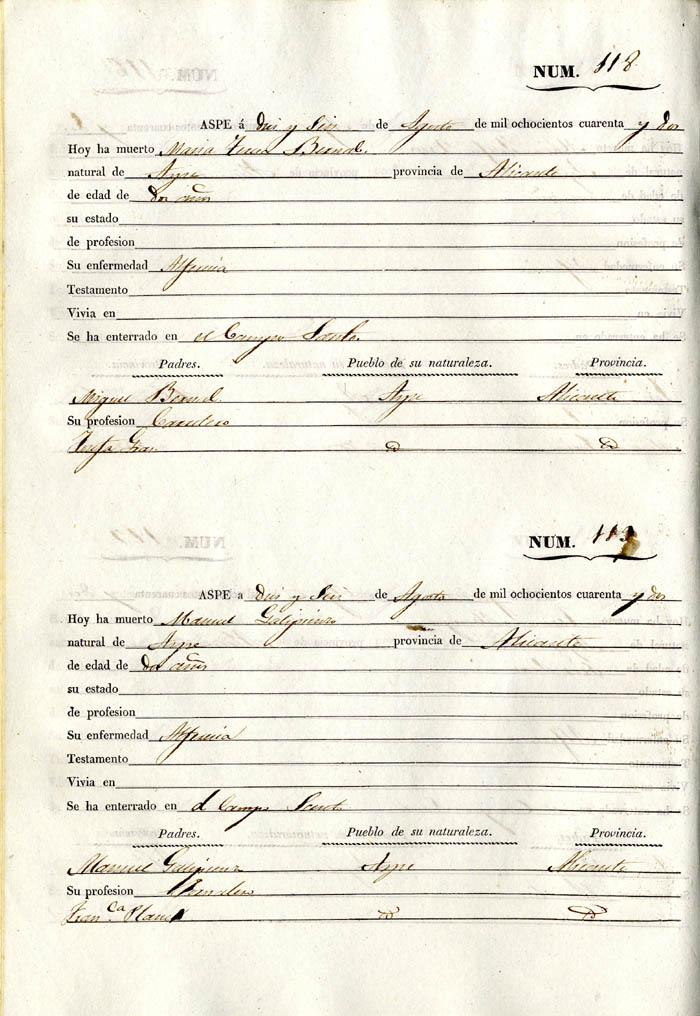 NUM. 118
ASPE á diez y Seis de Agosto de mil ochocientos cuarenta y dos
Hoy ha muerto Maria Teresa Bernal
natural de Aspe provincia de Alicante
de edad de dos años
su estado
de profesion
Su enfermedad Alferecia
Testamento
Vivia en
Se ha enterrado en el Campo Santo
Padres. Pueblo de su naturaleza. Provincia.
Miguel Bernal Aspe Alicante
Su profesion
Josefa
NUM. 119
ASPE a diez y Seis de Agosto de mil ochocientos cuarenta y dos
Hoy ha muerto Manuel Galipienzo
natural de Aspe provincia de Alicante
de edad de dos años
su estado
de profesion
Su enfermedad Alferecia
Testamento
Vivia en
Se ha enterrado en el Campo Santo
Padres. Pueblo de su naturaleza. Provincia.
Manuel Galipienzo Aspe Alicante
Su profesion Jornalero
Fran.ca